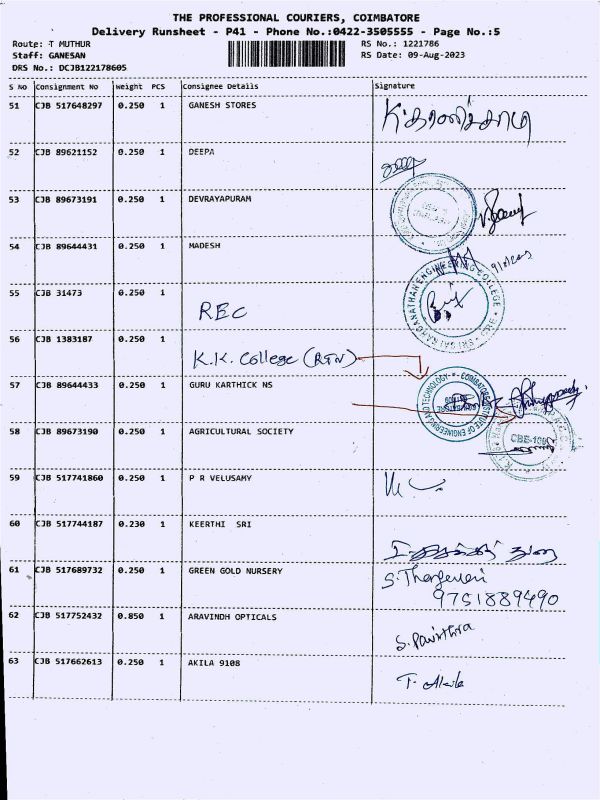 THE PROFESSIONAL COURIERS, COIMBATORE
Delivery Runsheet - P41 - Phone No.:0422-3505555 - Page No.:5
Route: T MUTHUR RS No.: 1221786
Staff: GANESAN RS Date: 09-Aug-2023
DRS No.: DCJB122178605
S No Consignment No Weight PCS Consignee Details Signature
51 CJB 517648297 0.250 1 GANESH STORES
52 CJB 89621152 0.250 1 DEEPA
53 CJB 89673191 0.250 1 DEVRAYAPURAM
54 CJB 89644431 0.250 1 MADESH
55 CJB 31473 0.250 1
REC
SRI RANGANATHAN ENGINEERING COLLEGE
56 CJB 1383187 0.250 1
K.K. College (RTN)
57 CJB 89644433 0.250 1 GURU KARTHICK NS
COIMBATORE INSTITUTE OF ENGINEERING AND TECHNOLOGY
58 CJB 89673190 0.250 1 AGRICULTURAL SOCIETY
59 CJB 517741860 0.250 1 P R VELUSAMY
60 CJB 517744187 0.230 1 KEERTHI SRI
61 CJB 517689732 0.250 1 GREEN GOLD NURSERY
9751889490
62 CJB 517752432 0.850 1 ARAVINDH OPTICALS
S. Pavithra
63 CJB 517662613 0.250 1 AKILA 9108
T. Akila